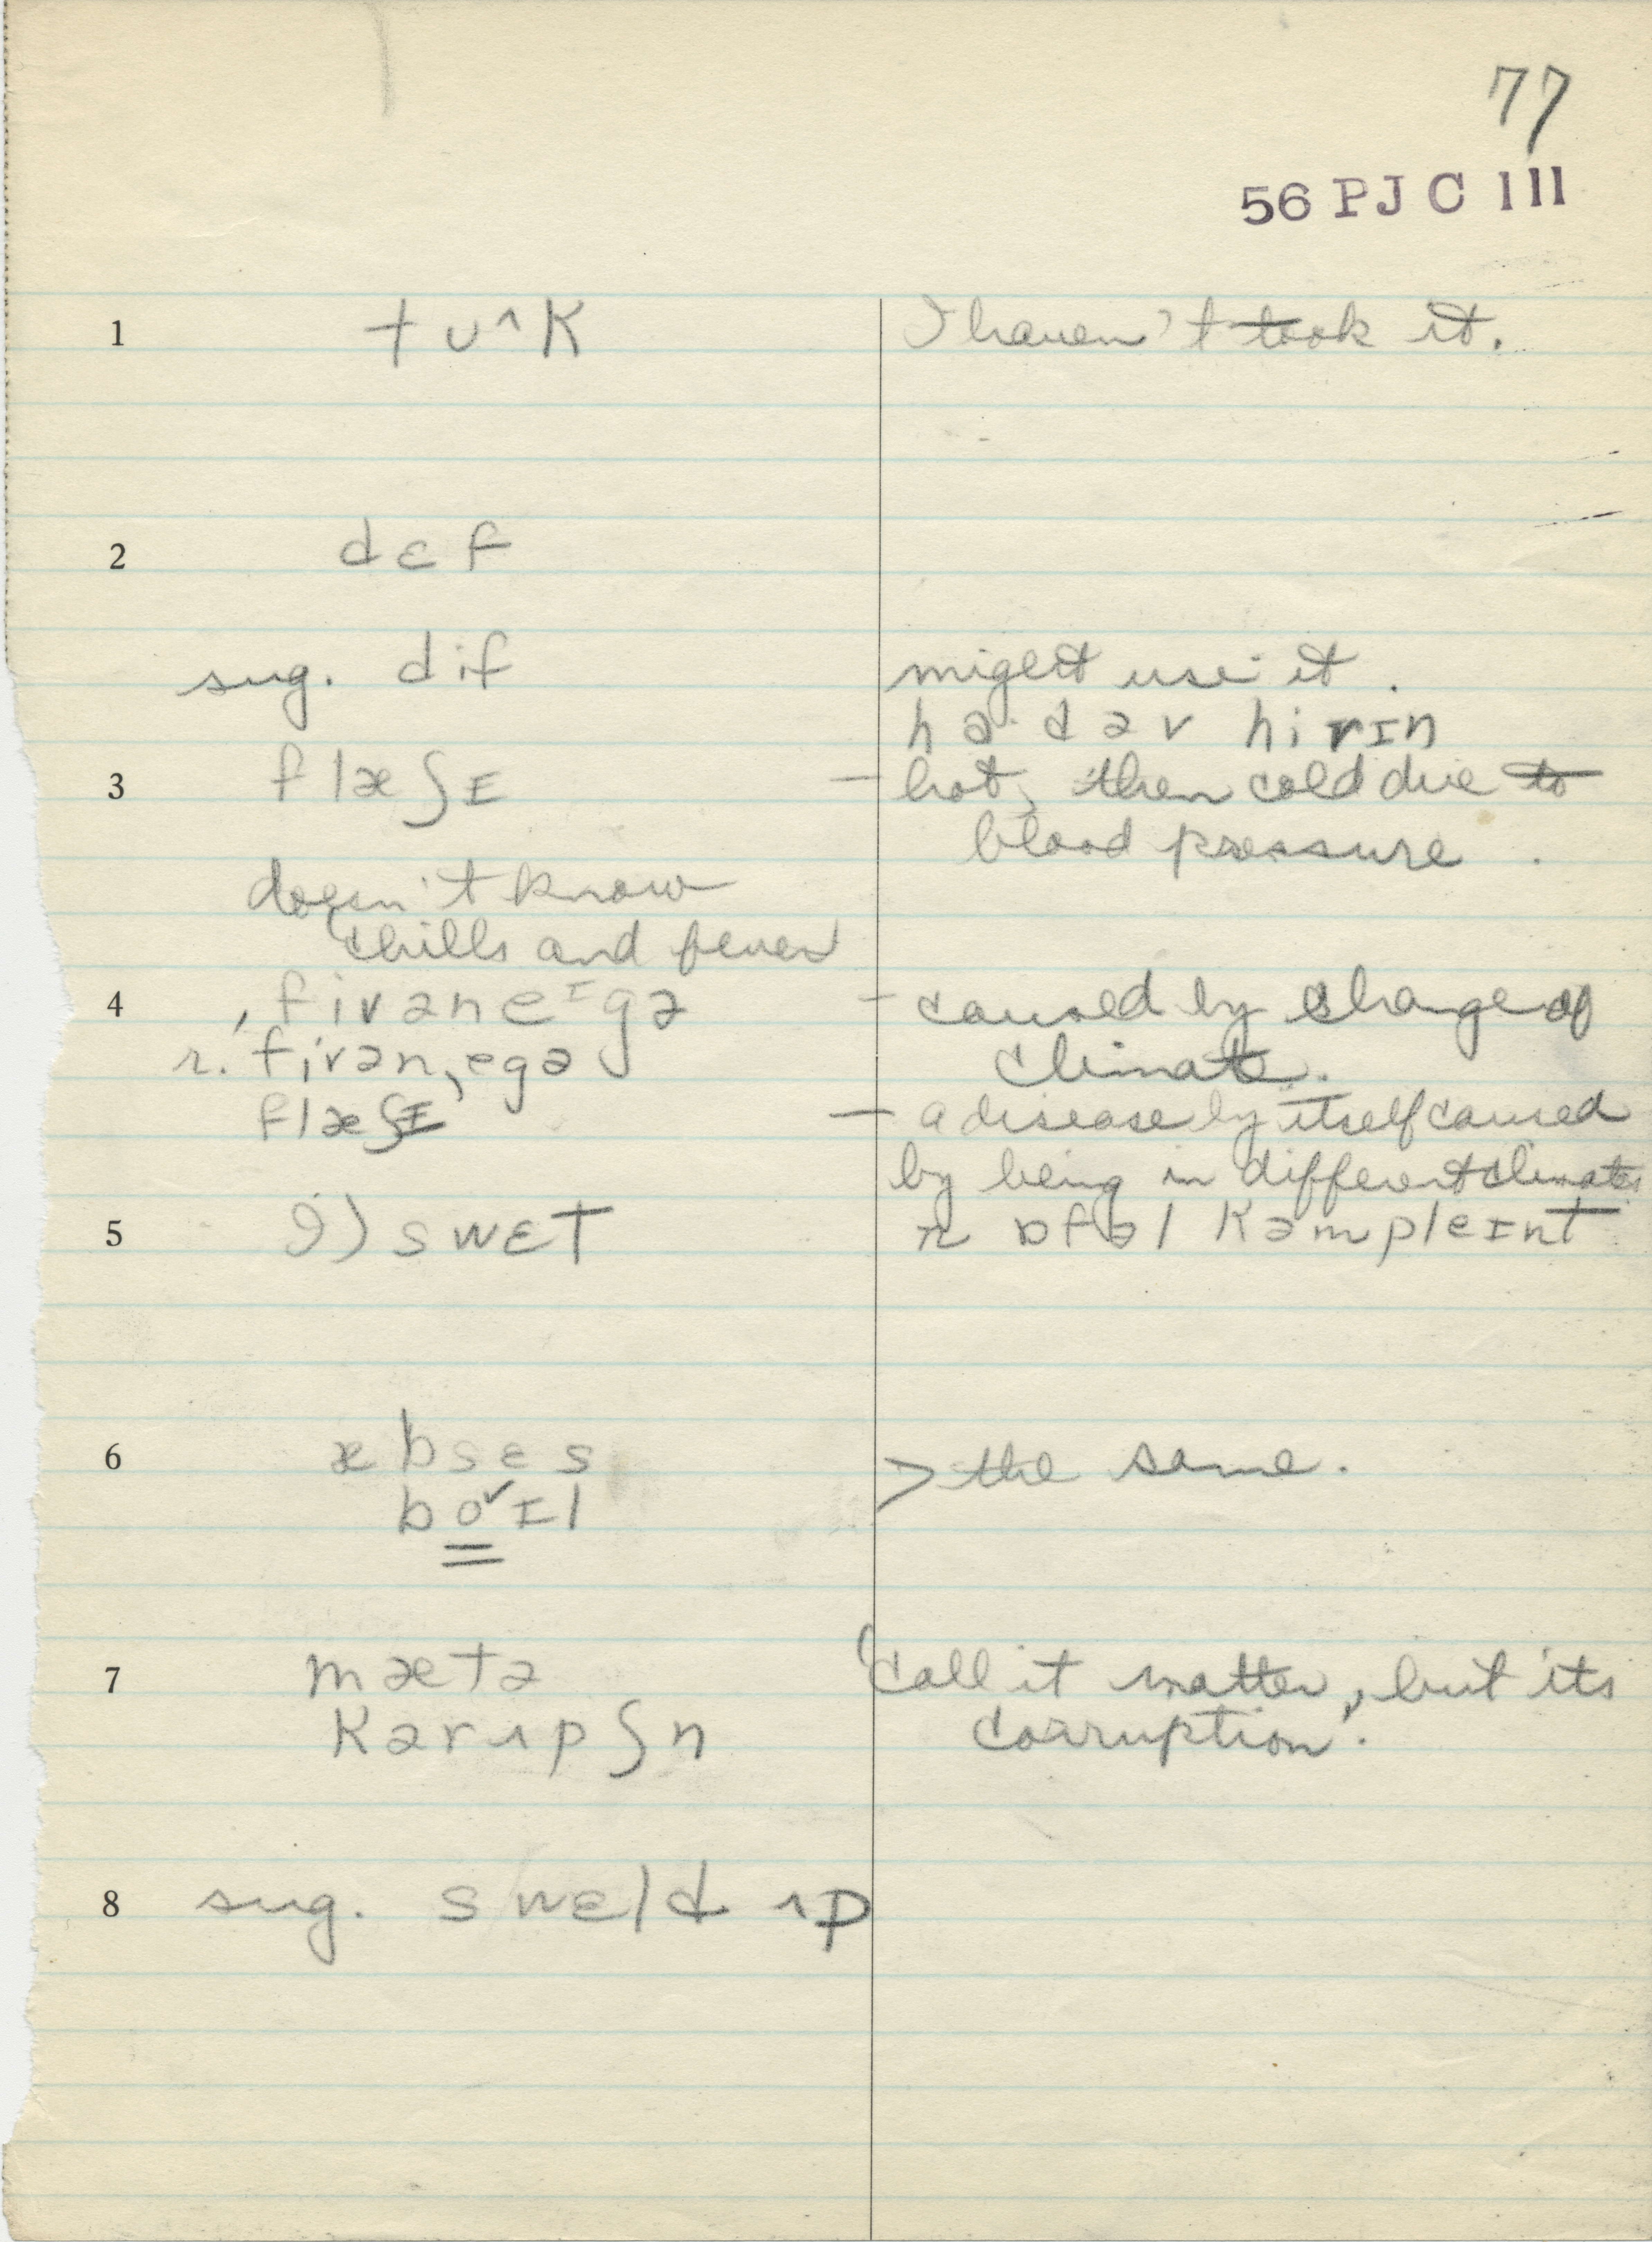 77
56 PJC 111
1 tʊ^k I haven't took it.
2 dɛf
sug. dif might use it.
ha·d əv hirɪn
3 flæʃɪ – hot, then cold due to
blood pressure.
doesn't know
chills and fever
4 ˌfivəneᴵgə – caused by change of
climate.
r. fˌivənˌegə
flæʃɪ – a disease by itself caused
by being in different climates
5 9) swɛt r ɒfəl kəmpleɪnt
6 æbsɛs > the same.
bo˅ɪl
7 mætə 'call it matter, but its
kərʌpʃn corruption'.
8 sug. swɛld ʌp